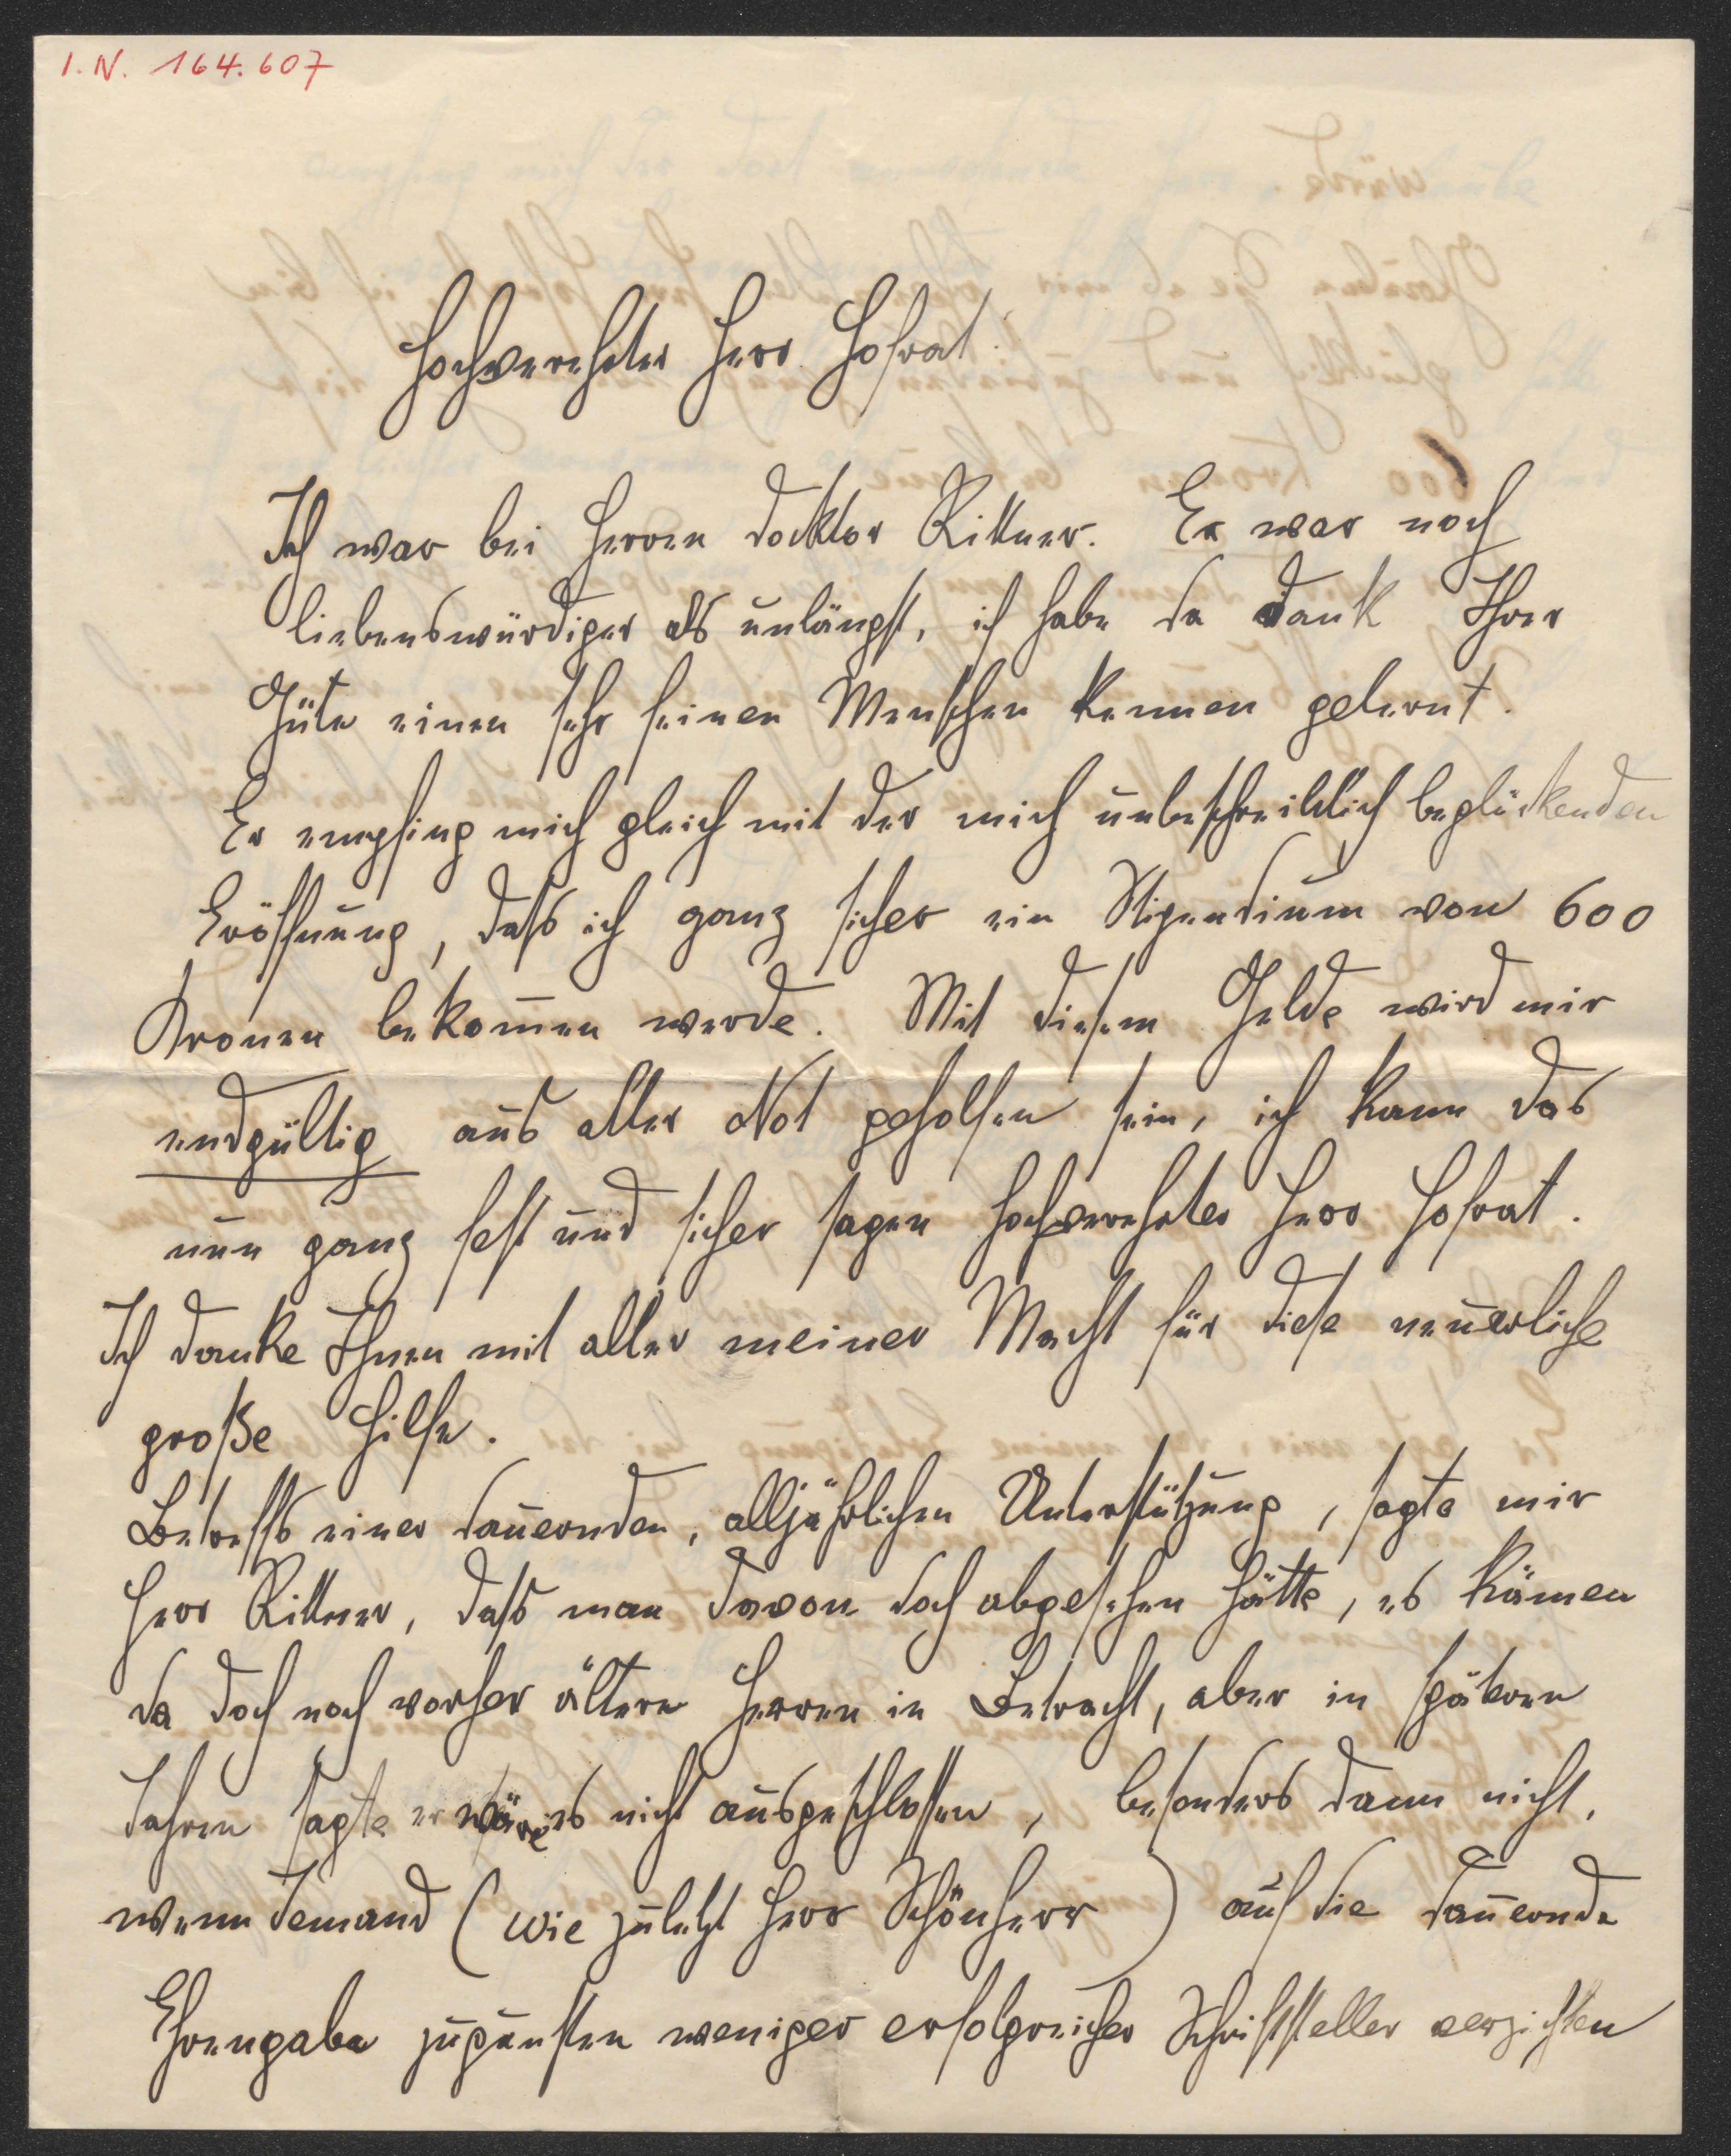 I. N. 164.607
Hochverehrter Herr Hofrat!
Ich war bei Herren docktor Rittner. Er war noch
liebenswürdiger als unlängst, ich habe da dank Ihrer
Güte einen sehr feinen Menschen kennen gelernt.
Er empfing mich gleich mit der mich unbeschreiblich beglückenden
Eröffnung, dass ich ganz sicher ein Stipendium von 600
Kronen bekom̅en werde. Mit diesem Gelde wird mir
endgültig aus aller Not geholfen sein, ich kann das
nun ganz fest und sicher sagen hochverehrter Herr Hofrat.
Ich danke Ihnen mit aller meiner Macht für diese neuerliche
große Hilfe.
Betreffs einer dauernden, alljährlichen Unterstützung, sagte mir
Herr Rittner, dass man davon doch abgesehen hätte, es kämen
da doch noch vorher ältere Herren in Betracht, aber in späteren
Jahren sagte er wäre es nicht ausgeschlossen, besonders dann nicht,
wenn Jemand (wie zuletzt Herr Schönherr) auf die dauernde
Ehrengabe zugunsten weniger erfolgreicher Schriftsteller verzichten